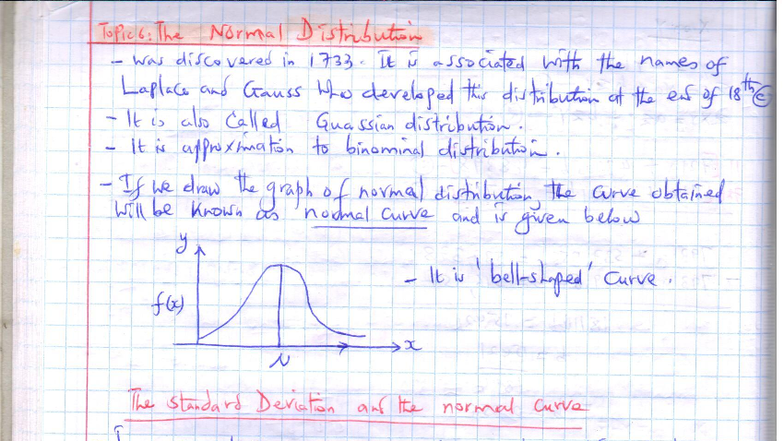 Topic 6: The Normal Distribution
- Was discovered in 1733. It is associated with the names of
Laplace and Gauss who developed this distribution at the end of 18th C
- It is also called Guassian distribution.
- It is approximation to binominal distribution.
- If we draw the graph of normal distribution, the curve obtained
will be known as normal curve and is given below
y
- It is 'bell-shaped' curve.
f(x)
x
The standard Deviation and the normal curve